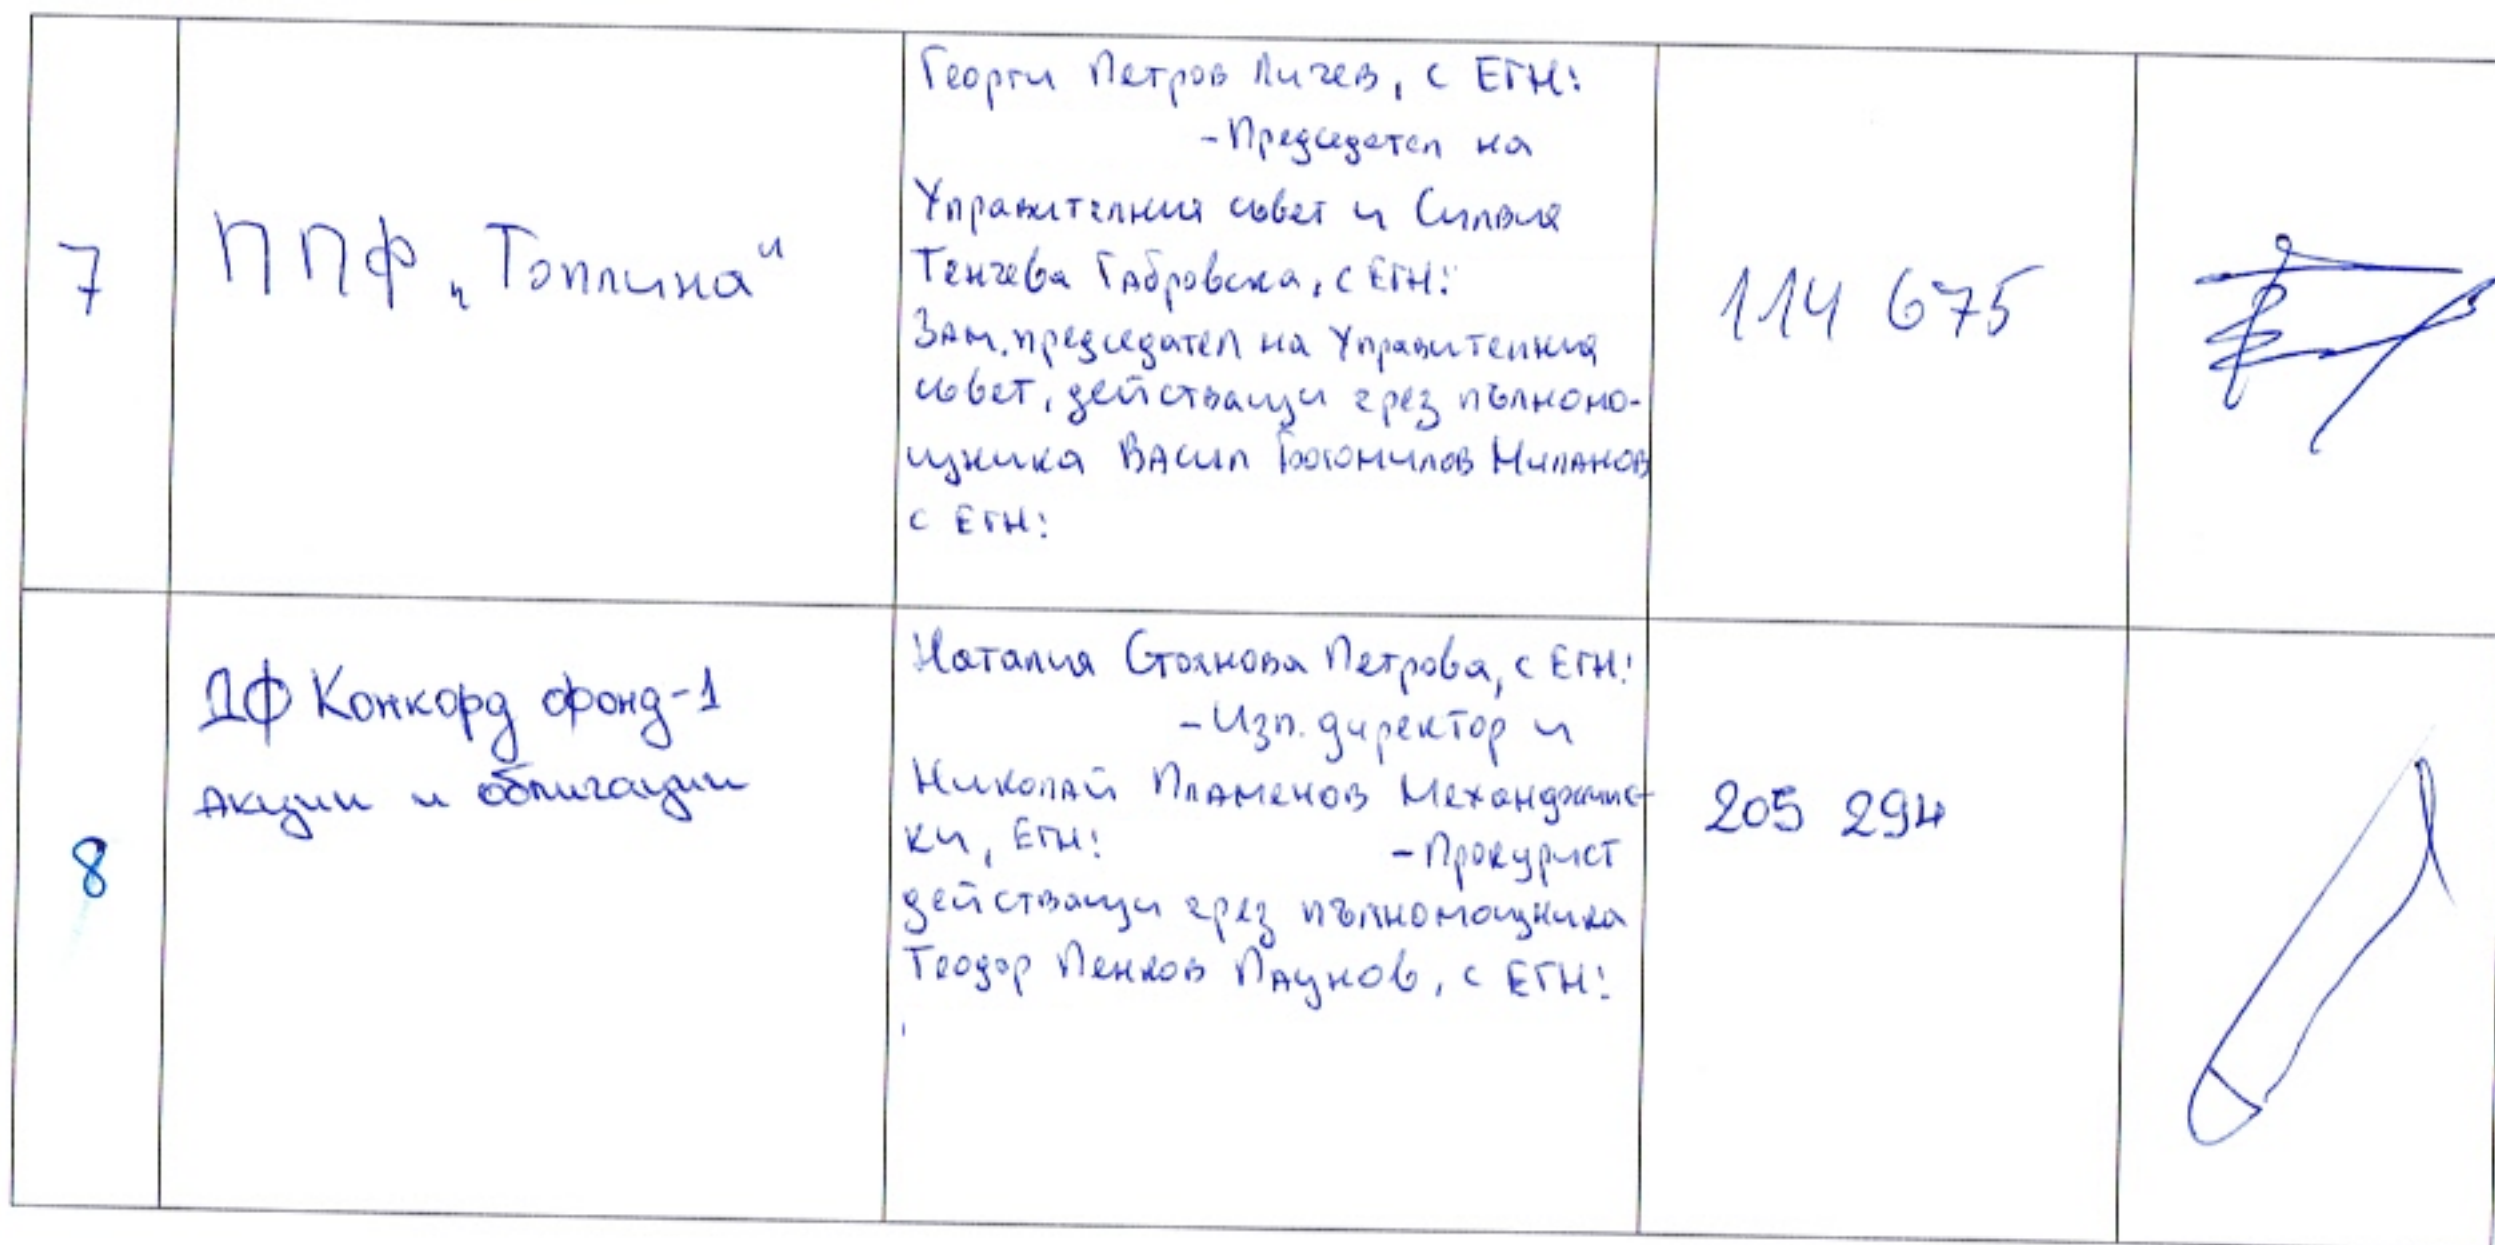 7
ППФ „Топлина“
Георги Петров Личев, с ЕГН:
-Председател на
Управителния съвет и Силвия
Тенчева Габровска, с ЕГН:
Зам. председател на Управителния
съвет, действащи чрез пълномо-
щника Васил Богомилов Миланов
с ЕГН:
114 675
8
ДФ Конкорд фонд-1
Акции и облигации
Наталия Стоянова Петрова, с ЕГН:
-Изп. директор и
Николай Пламенов Механджийс-
ки, ЕГН: -Прокурист
действащи чрез пълномощника
Теодор Пенков Паунов, с ЕГН:
205 294